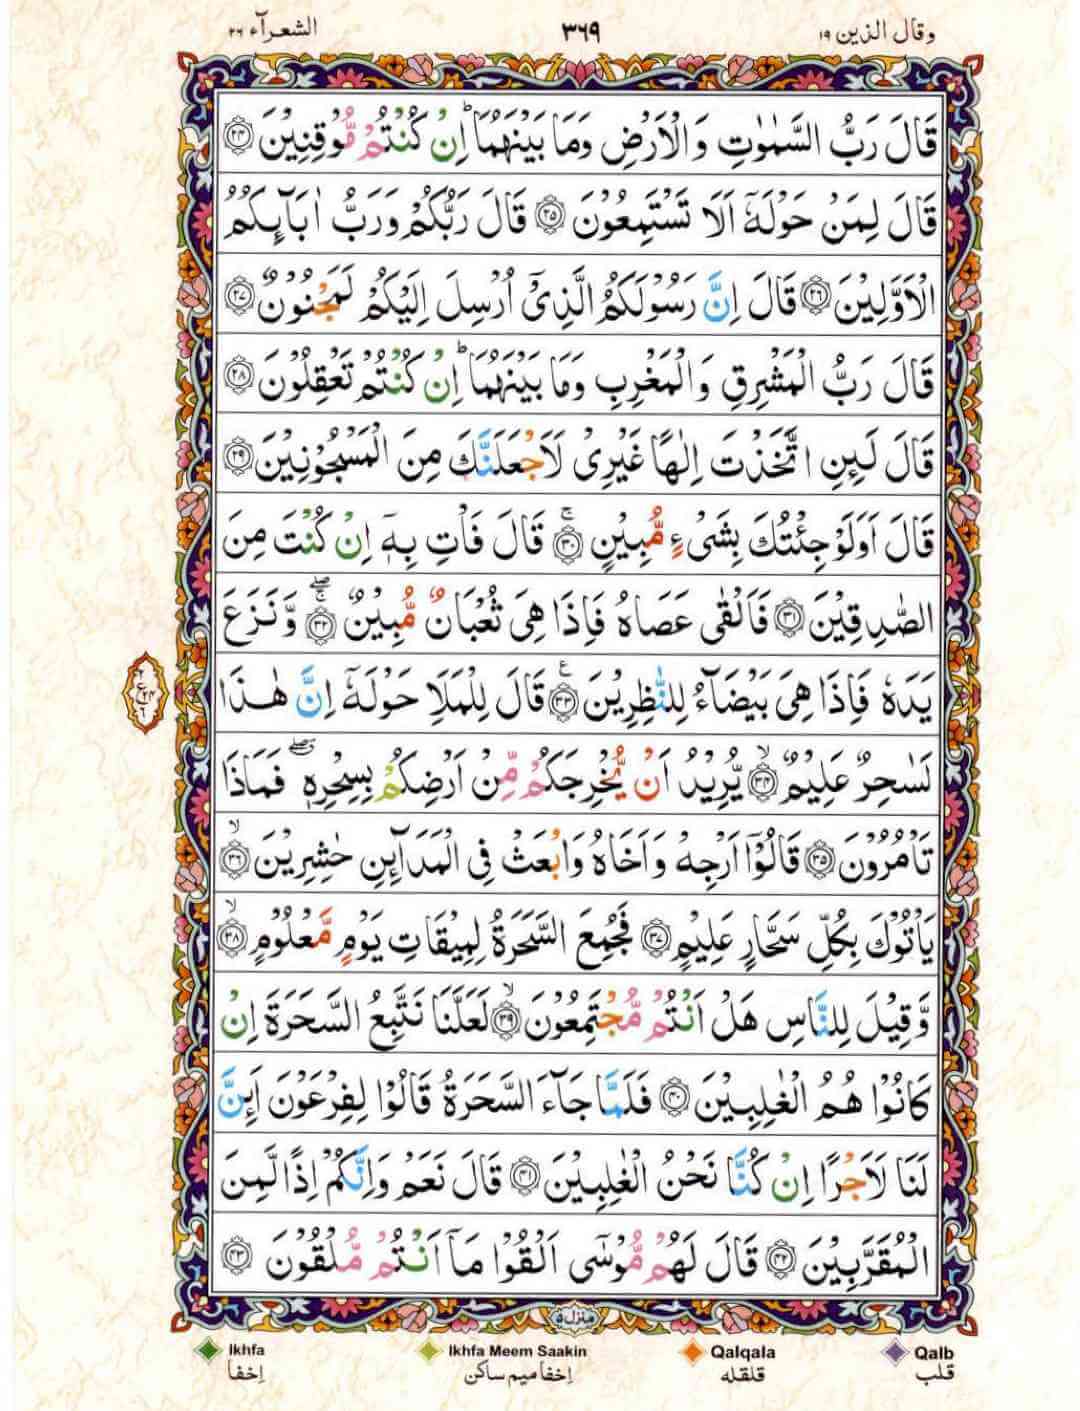 وقال الذين ١٩
٣٦٩
الشعرآء ٢٦
قَالَ رَبُّ السَّمٰوٰتِ وَالْاَرْضِ وَمَا بَيْنَهُمَا ؕ اِنْ كُنْتُمْ مُّوْقِنِيْنَ ﴿٢٤﴾
قَالَ لِمَنْ حَوْلَهٗۤ اَلَا تَسْتَمِعُوْنَ ﴿٢٥﴾ قَالَ رَبُّكُمْ وَرَبُّ اٰبَآئِكُمُ
الْاَوَّلِيْنَ ﴿٢٦﴾ قَالَ اِنَّ رَسُوْلَكُمُ الَّذِىْۤ اُرْسِلَ اِلَيْكُمْ لَمَجْنُوْنٌ ﴿٢٧﴾
قَالَ رَبُّ الْمَشْرِقِ وَالْمَغْرِبِ وَمَا بَيْنَهُمَا ؕ اِنْ كُنْتُمْ تَعْقِلُوْنَ ﴿٢٨﴾
قَالَ لَئِنِ اتَّخَذْتَ اِلٰهًا غَيْرِىْ لَاَجْعَلَنَّكَ مِنَ الْمَسْجُوْنِيْنَ ﴿٢٩﴾
قَالَ اَوَلَوْ جِئْتُكَ بِشَىْءٍ مُّبِيْنٍ ۚ ﴿٣٠﴾ قَالَ فَاْتِ بِهٖۤ اِنْ كُنْتَ مِنَ
الصّٰدِقِيْنَ ﴿٣١﴾ فَاَلْقٰى عَصَاهُ فَاِذَا هِىَ ثُعْبَانٌ مُّبِيْنٌ ۖۚ ﴿٣٢﴾ وَّنَزَعَ
يَدَهٗ فَاِذَا هِىَ بَيْضَآءُ لِلنّٰظِرِيْنَ ﴿٣٣﴾ ع قَالَ لِلْمَلَاِ حَوْلَهٗۤ اِنَّ هٰذَا
لَسٰحِرٌ عَلِيْمٌ ۙ ﴿٣٤﴾ يُّرِيْدُ اَنْ يُّخْرِجَكُمْ مِّنْ اَرْضِكُمْ بِسِحْرِهٖ ۖ فَمَاذَا
تَاْمُرُوْنَ ﴿٣٥﴾ قَالُوْۤا اَرْجِهْ وَاَخَاهُ وَابْعَثْ فِى الْمَدَآئِنِ حٰشِرِيْنَ ۙ ﴿٣٦﴾
يَاْتُوْكَ بِكُلِّ سَحَّارٍ عَلِيْمٍ ﴿٣٧﴾ فَجُمِعَ السَّحَرَةُ لِمِيْقَاتِ يَوْمٍ مَّعْلُوْمٍ ۙ ﴿٣٨﴾
وَّقِيْلَ لِلنَّاسِ هَلْ اَنْتُمْ مُّجْتَمِعُوْنَ ۙ ﴿٣٩﴾ لَعَلَّنَا نَتَّبِعُ السَّحَرَةَ اِنْ
كَانُوْا هُمُ الْغٰلِبِيْنَ ﴿٤٠﴾ فَلَمَّا جَآءَ السَّحَرَةُ قَالُوْا لِفِرْعَوْنَ اَئِنَّ
لَنَا لَاَجْرًا اِنْ كُنَّا نَحْنُ الْغٰلِبِيْنَ ﴿٤١﴾ قَالَ نَعَمْ وَاِنَّكُمْ اِذًا لَّمِنَ
الْمُقَرَّبِيْنَ ﴿٤٢﴾ قَالَ لَهُمْ مُّوْسٰۤى اَلْقُوْا مَاۤ اَنْتُمْ مُّلْقُوْنَ ﴿٤٣﴾
منزل ٥
Ikhfa
Ikhfa Meem Saakin
Qalqala
Qalb
إخفا
إخفا ميم ساكن
قلقله
قلب